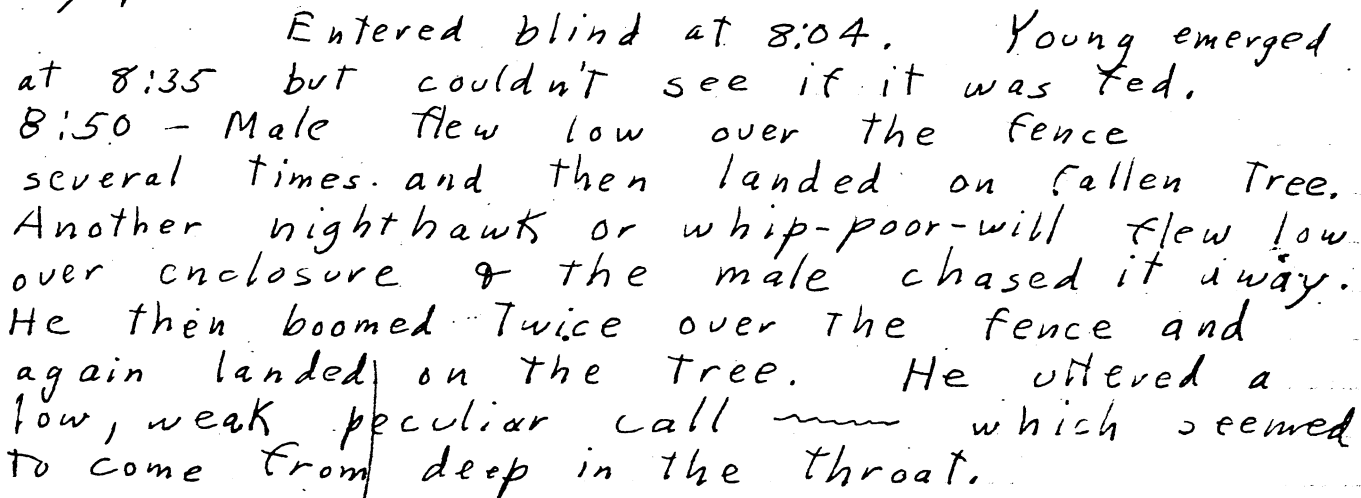 Entered blind at 8:04. Young emerged
at 8:35 but couldn't see if it was fed.
8:50 - Male flew low over the fence
several times. and then landed on fallen Tree.
Another nighthawk or whip-poor-will flew low
over enclosure & the male chased it away.
He then boomed Twice over the fence and
again landed on the tree. He uttered a
low, weak peculiar call ~~~ which seemed
to come from deep in the throat.